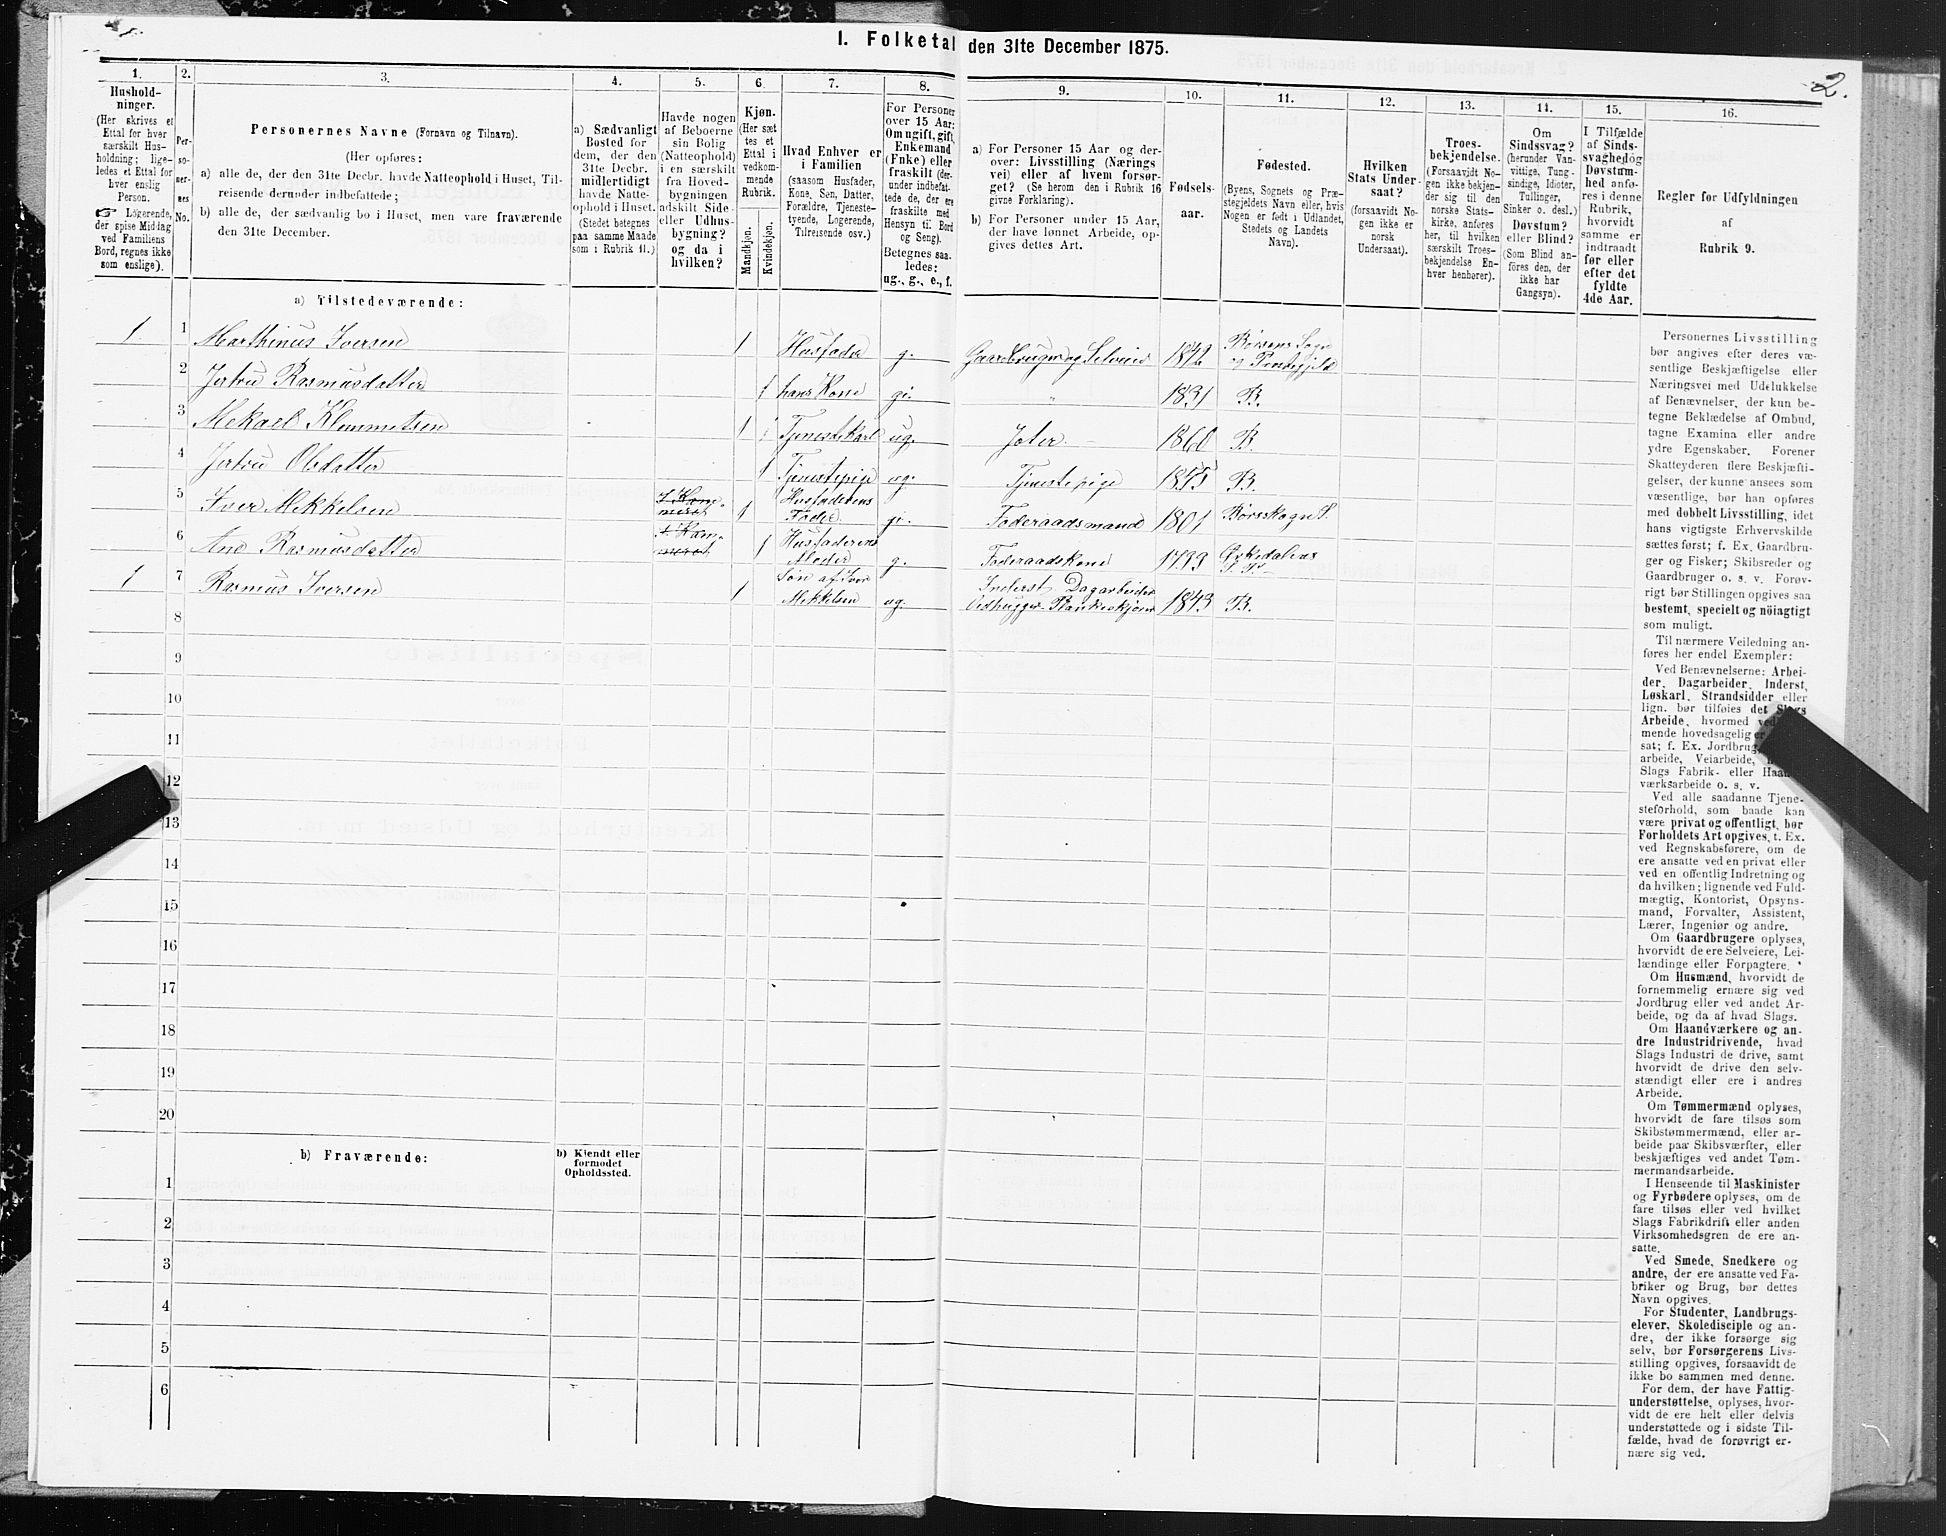 I. Folketal den 31te December 1875.
2.
1.
Hushold-
ninger.
(Her skrives et
Ettal for hver
særskilt Hus-
holdning; lige-
ledes et Ettal for
hver enslig
Person.
☞ Logerende,
der spise Middag
ved Familiens
Bord, regnes ikke
som enslige).
2.
Per-
so-
ner-
nes
No.
3.
Personernes Navne (Fornavn og Tilnavn).
(Her opføres:
a) alle de, der den 31te Decbr. havde Natteophold i Huset, Til-
reisende derunder indbefattede;
b) alle de, der sædvanlig bo i Huset, men vare fraværende
den 31te December.
4.
a) Sædvanligt
Bosted for
dem, der den
31te Decbr.
midlertidigt
havde Natte-
ophold i Huset.
(Stedet betegnes
paa samme Maade
som i Rubrik 11.)
5.
Havde nogen
af Beboerne
sin Bolig
(Natteophold)
i en særskilt
fra Hoved-
bygningen
adskilt Side-
eller Udhus-
bygning?
og da i
hvilken?
6.
Kjøn.
(Her sæt
tes et
Ettal i
vedkom-
mende
Rubrik.
Mandkjøn.
Kvindekjøn.
7.
Hvad Enhver er
i Familien
(saasom Husfader,
Kone, Søn, Datter,
Forældre, Tjeneste-
tyende, Logerende,
Tilreisende osv.)
8.
For Personer
over 15 Aar:
Om ugift, gift,
Enkemand
(Enke) eller
fraskilt (der-
under indbefat-
tede de, der ere
fraskilte med
Hensyn til Bord
og Seng).
Betegnes saa-
ledes:
ug., g., e., f.
9.
a) For Personer 15 Aar og der-
over: Livsstilling (Nærings
vei) eller af hvem forsør-
get? (Se herom den i Rubrik 16
givne Forklaring).
b) For Personer under 15 Aar,
der have lønnet Arbeide, op-
gives dettes Art.
10.
Fødsels-
aar.
11.
Fødested.
(Byens, Sognets og Præ-
stegjeldets Navn eller, hvis
Nogen er født i Udlandet,
Stedets og Landets
Navn).
12.
Hvilken
Stats Under-
saat?
(forsaavidt No-
gen ikke er
norsk
Undersaat).
13.
Troes-
bekjendelse.
(Forsaavidt No-
gen ikke bekjen-
der sig til den
norske Stats-
kirke, anføres
her, til hvilken
særskilt Troes-
bekjendelse En-
hver henhører).
14.
Om
Sindssvag?
(herunder Van-
vittige, Tung-
sindige, Idioter,
Tullinger,
Sinker o. desl.)
Døvstum?
eller Blind?
(Som Blind an-
føres den, der
ikke har
Gangsyn).
15.
I Tilfælde
af Sinds-
svaghed og
Døvstum-
hed anfø-
res i denne
Rubrik,
hvorvidt
samme er
indtraadt
før eller
efter det
fyldte
4de Aar.
16.
Regler for Udfyldningen
af
Rubrik 9.
a) Tilstedeværende:
1 1 Marthinus Iversen 1 Husfader g. Gaardbruger og Selveier 1842 Børsens Sogn
og Prestegjeld
2 Jertru Rasmusdatter 1 hans Kone gi. " 1831 B.
3 Mekael Klemmetsen 1 Tjenestekarl ug. 1860 B.
4 Jertru Olsdatter 1 Tjenestepige ug. Tjenestepige 1855 B.
5 Iver Mekkelsen I Kam-
meret 1 Husfaderens
Fader. gi. Føderaadsmand 1801
6 Ane Rasmusdatter I Kam-
meret 1 Husfaderens
Moder g. Føderaadskone 1799 Orkedalens
1 7 Rasmus Iversen 1 Søn af Iver
Mekkelsen ug. Inderst Dagarbeider
Vedhugger 1843 B.
8
9
10
11
12
13
14
15
16
17
18
19
20
b) Fraværende:
b) Kjendt eller
formodet
Opholdssted.
1
2
3
4
5
6
Personernes Livsstilling
bør angives efter deres væ-
sentlige Beskjæftigelse eller
Næringsvei med Udelukkelse
af Benævnelser, der kun be-
tegne Beklædelse af Ombud,
tagne Examina eller andre
ydre Egenskaber. Forener
Skatteyderen flere Beskjæfti-
gelser, der kunne ansees som
væsentlige, bør han opføres
med dobbelt Livsstilling, idet
hans vigtigste Erhvervskilde
sættes først; f. Ex. Gaardbru-
ger og Fisker; Skibsreder og
Gaardbruger o. s. v. Forøv-
rigt bør Stillingen opgives saa
bestemt, specielt og nøiagtigt
som muligt.
Til nærmere Veiledning an-
føres her endel Exempler:
Ved Benævnelserne: Arbei-
der, Dagarbeider, Inderst,
Løskarl, Strandsidder eller
lign. bør tilføies det Slags
Arbeide, hvormed ved
mende hovedsagelig er
sat; f. Ex. Jordbrug,
arbeide, Veiarbeide,
Slags Fabrik- eller Haand
værksarbeide o. s. v.
Ved alle saadanne Tjene-
steforhold, som baade kan
være privat og offentligt, bør
Forholdets Art opgives, t. Ex.
ved Regnskabsførere, om de
ere ansatte ved en privat eller
ved en offentlig Indretning og
da hvilken; lignende ved Fuld-
mægtig, Kontorist, Opsyns-
mand, Forvalter, Assistent,
Lærer, Ingeniør og andre.
Om Gaardbrugere oplyses,
hvorvidt de ere Selveiere, Lei-
lændinge eller Forpagtere.
Om Husmænd, hvorvidt de
fornemmelig ernære sig ved
Jordbrug eller ved andet Ar-
beide, og da af hvad Slags.
Om Haandværkere og an-
dre Industridrivende, hvad
Slags Industri de drive, samt
hvorvidt de drive den selv-
stændigt eller ere i andres
Arbeide.
Om Tømmermænd oplyses,
hvorvidt de fare tilsøs som
Skibstømmermænd, eller ar-
beide paa Skibsværfter, eller
beskjæftiges ved andet Tøm-
mermandsarbeide.
I Henseende til Maskinister
og Fyrbødere oplyses, om de
fare tilsøs eller ved hvilket
Slags Fabrikdrift eller anden
Virksomhedsgren de ere an-
satte.
Ved Smede, Snedkere og
andre, der ere ansatte ved Fa-
briker og Brug, bør dettes
Navn opgives.
For Studenter, Landbrugs-
elever, Skoledisciple og an-
dre, der ikke forsørge sig
selv, bør Forsørgerens Livs-
stilling opgives, forsaavidt de
ikke bo sammen med denne.
For dem, der have Fattig-
understøttelse, oplyses, hvor-
vidt de ere helt eller delvis
understøttede og i sidste Til-
fælde, hvad de forøvrigt er-
nære sig ved.